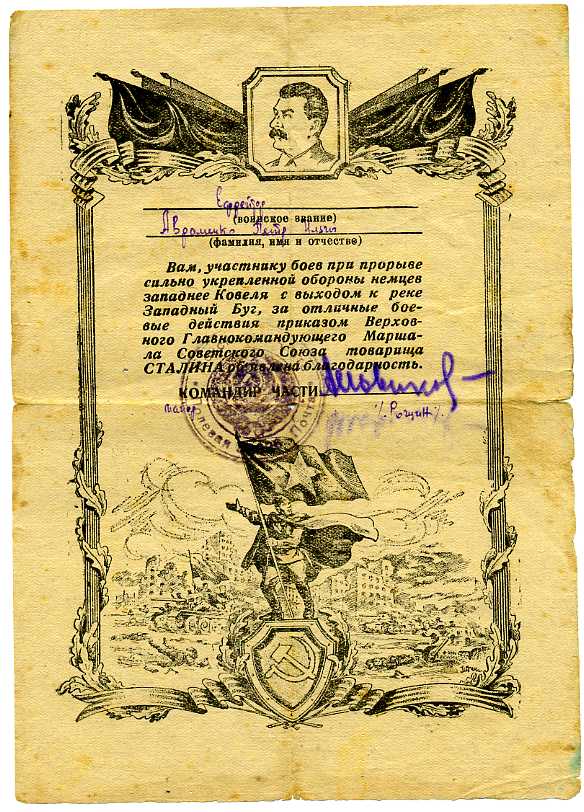 Ефрейтор
(воинское звание)
Авраменко Петр Ильич
(фамилия, имя и отчество)
Вам, участнику боев при прорыве
сильно укрепленной обороны немцев
западнее Ковеля с выходом к реке
Западный Буг, за отличные бое-
вые действия приказом Верхов-
ного Главнокомандующего Марша-
ла Советского Союза товарища
СТАЛИНА объявлена благодарность.
КОМАНДИР ЧАСТИ
майор
Полевая Почта